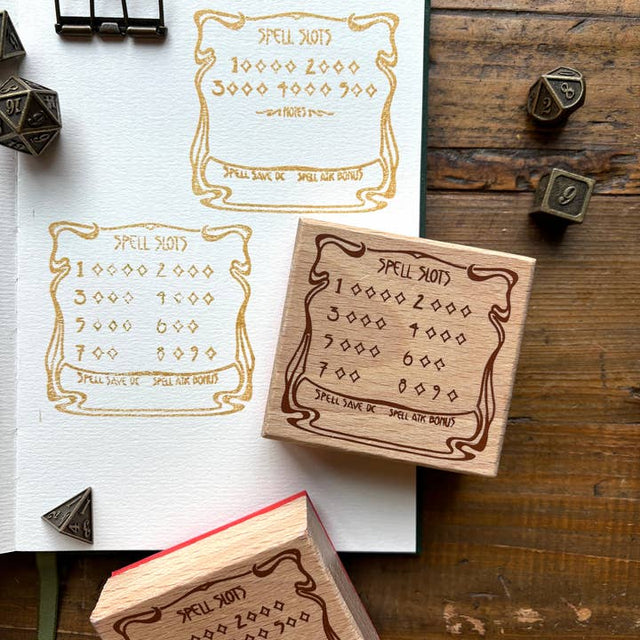 SPELL SLOTS
1◇◇◇◇ 2◇◇◇
3◇◇◇ 4◇◇◇ 5◇◇
NOTES
SPELL SAVE DC SPELL ATK BONUS
SPELL SLOTS
1◇◇◇◇ 2◇◇◇
3◇◇◇ 4◇◇◇
5◇◇◇ 6◇◇
7◇◇ 8◇9◇
SPELL SAVE DC SPELL ATK BONUS
SPELL SLOTS
1◇◇◇◇ 2◇◇◇
3◇◇◇ 4◇◇◇
5◇◇◇ 6◇◇
7◇◇ 8◇9◇
SPELL SAVE DC SPELL ATK BONUS
SPELL SLOTS
2◇◇◇
5◇◇
16
8
2
9